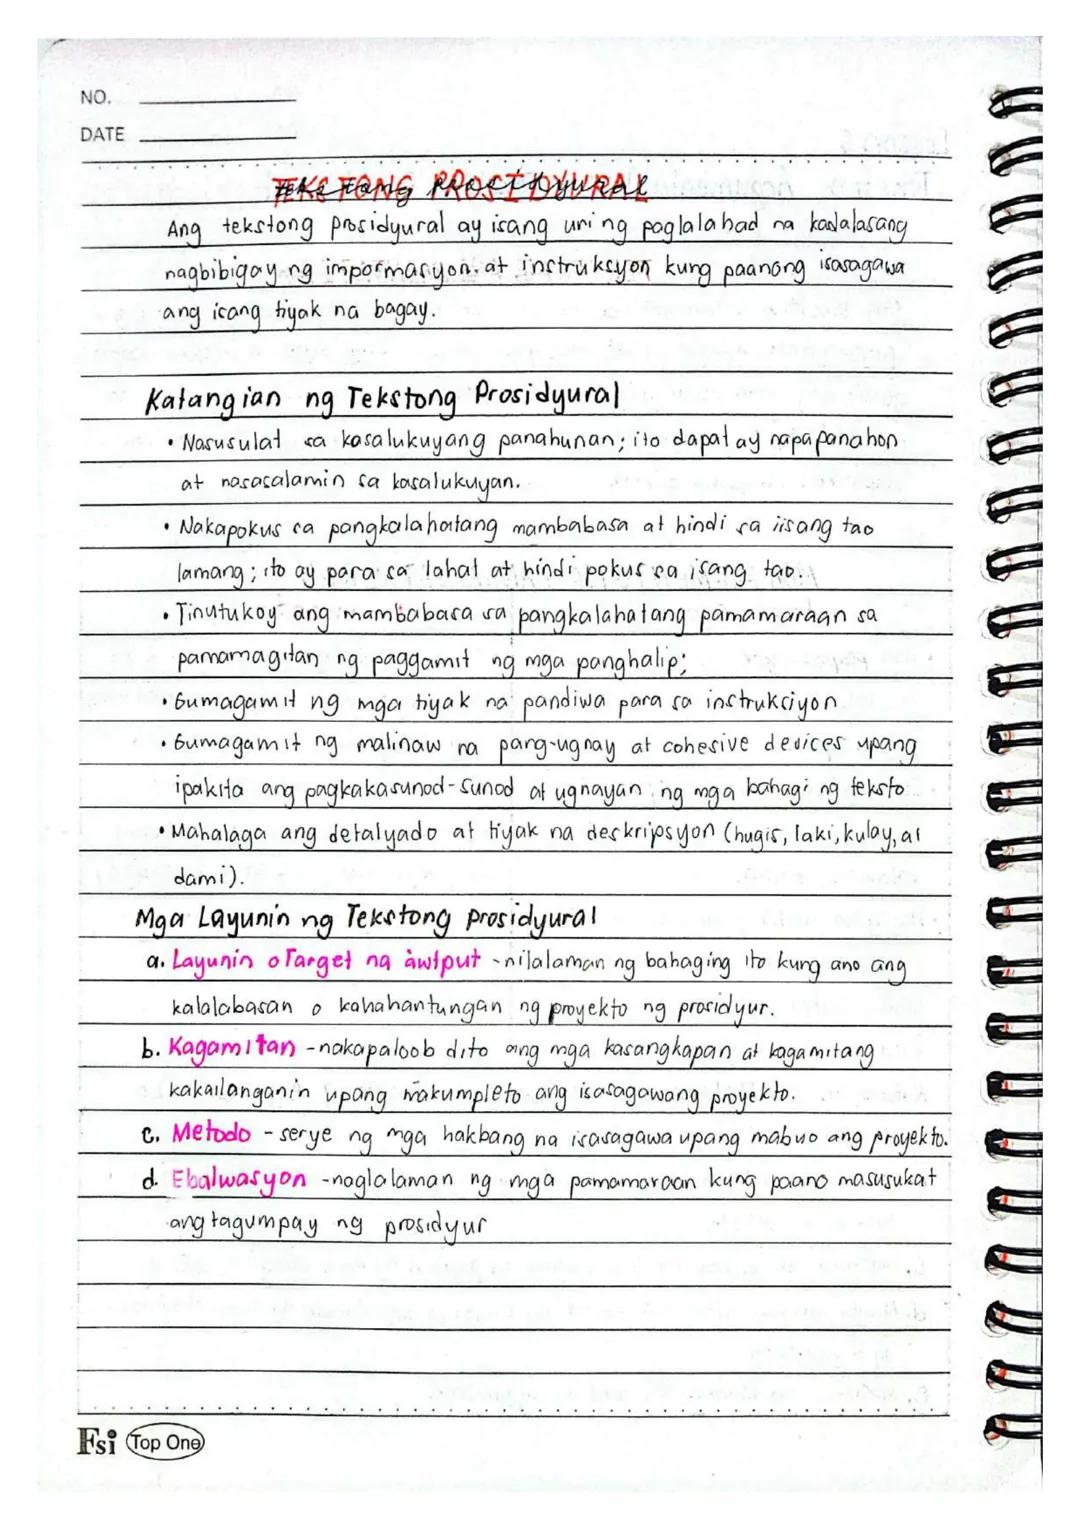 NO.
DATE
TEKSTONG PROSIDYURAL
Ang tekstong prosidyural ay isang uri ng paglalahad na kadalasang
nagbibigay ng impormasyon at instruksyon kung paanong isasagawa
ang isang tiyak na bagay.
Katangian ng Tekstong Prosidyural
• Nasusulat sa kasalukuyang panahunan; ito dapat ay napapanahon
at nasasalamin sa kasalukuyan.
• Nakapokus sa pangkalahatang mambabasa at hindi sa iisang tao
lamang; ito ay para sa lahat at hindi pokus sa isang tao.
• Tinutukoy ang mambabasa sa pangkalahatang pamamaraan sa
pamamagitan ng paggamit ng mga panghalip;
• Gumagamit ng mga tiyak na pandiwa para sa instruksiyon
• Gumagamit ng malinaw na pang-ugnay at cohesive devices upang
ipakita ang pagkakasunod-sunod at ugnayan ng mga bahagi ng teksto
• Mahalaga ang detalyado at tiyak na deskripsyon (hugis, laki, kulay, at
dami).
Mga Layunin ng Tekstong prosidyural
a. Layunin o Target na awtput - nilalaman ng bahaging ito kung ano ang
kalalabasan o kahahantungan ng proyekto ng prosidyur.
b. Kagamitan - nakapaloob dito ang mga kasangkapan at kagamitang
kakailanganin upang makumpleto ang isasagawang proyekto.
c. Metodo - serye ng mga hakbang na isasagawa upang mabuo ang proyekto.
d. Ebalwasyon - naglalaman ng mga pamamaraan kung paano masusukat
ang tagumpay ng prosidyur
Fsi Top One